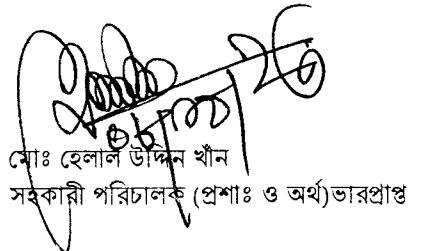 মোঃ হেলাল উদ্দিন খাঁন
সহকারী পরিচালক (প্রশাঃ ও অর্থ)ভারপ্রাপ্ত